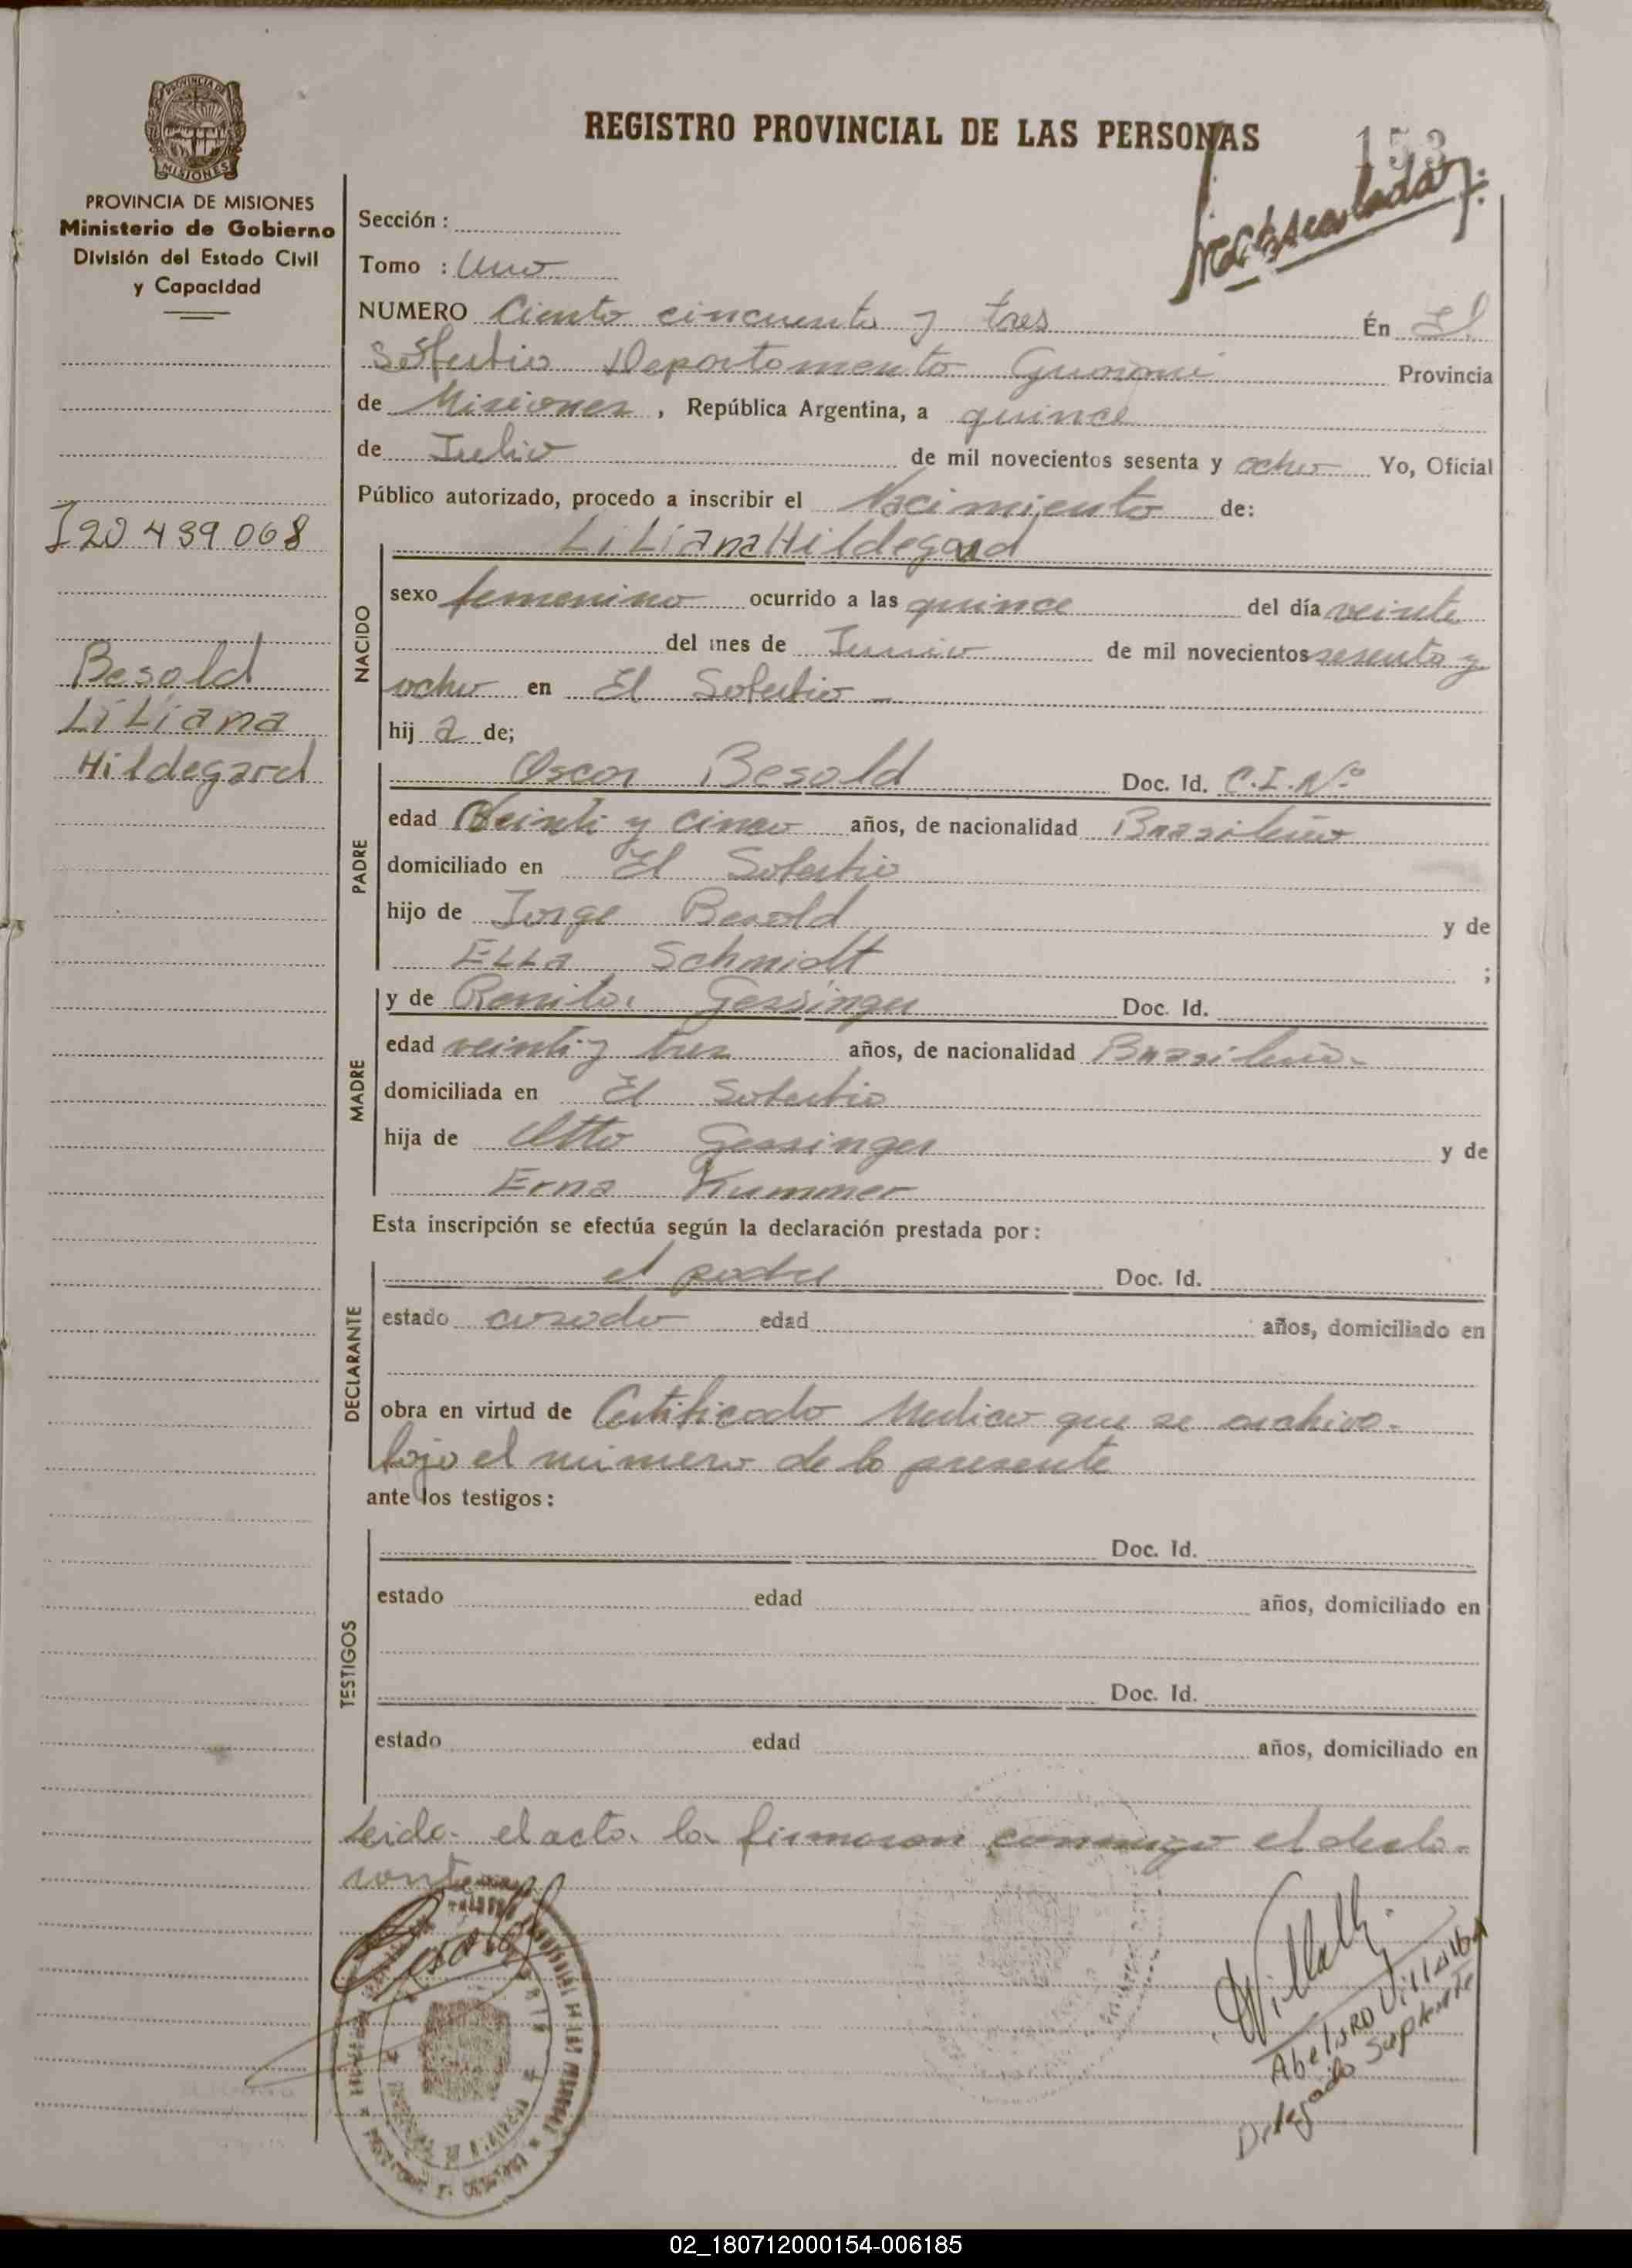 PROVINCIA DE
MISIONES
PROVINCIA DE MISIONES
Ministerio de Gobierno
División del Estado Civil
y Capacidad
I 20 439 068
Besold
Liliana
Hildegard
REGISTRO PROVINCIAL DE LAS PERSONAS
153
Sección :
Tomo : Uno
NUMERO Ciento cincuenta y tres En El
Soberbio Departamento Guarani Provincia
de Misiones , República Argentina, a quince
de Julio de mil novecientos sesenta y ocho Yo, Oficial
Público autorizado, procedo a inscribir el Nacimiento de:
Liliana Hildegard
NACIDO
sexo femenino ocurrido a las quince del día veinte
del mes de Junio de mil novecientos sesenta y
ocho en El Soberbio
hij a de;
PADRE
Oscar Besold Doc. Id. C.I.Nº
edad Veinti y cinco años, de nacionalidad Brasileño
domiciliado en El Soberbio
hijo de Jorge Besold y de
Ella Schmidt ;
MADRE
y de Renita Gessinger Doc. Id.
edad veinti y tres años, de nacionalidad Brasileña
domiciliada en El Soberbio
hija de Otto Gessinger y de
Erna Kummer
Esta inscripción se efectúa según la declaración prestada por :
DECLARANTE
el padre Doc. Id.
estado casado edad años, domiciliado en
obra en virtud de Certificado Medico que se archiva
bajo el numero de la presente
ante los testigos :
TESTIGOS
Doc. Id.
estado edad años, domiciliado en
Doc. Id.
estado edad años, domiciliado en
Leida el acta la firmaron conmigo el decla-
rante
Besold
Villalb
Abelardo Villalba
Delegado Suplente
02_180712000154-006185